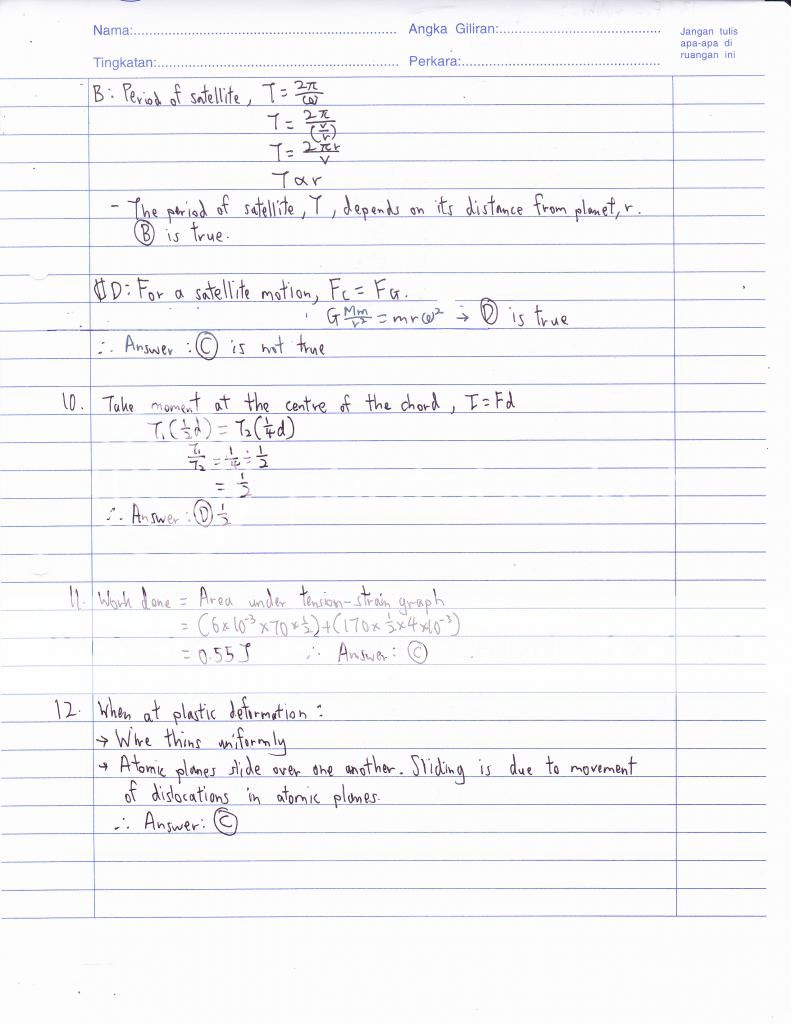 Nama:.......... Angka Giliran:.......... Jangan tulis
apa-apa di
ruangan ini
Tingkatan:.......... Perkara:..........
B: Period of satellite, T = 2π/ω
T = 2π/(v/r)
T = 2πr/v
T ∝ r
- The period of satellite, T, depends on its distance from planet, r.
Ⓑ is true.
D: For a satellite motion, Fc = FG.
G Mm/r² = mrω² → Ⓓ is true
∴ Answer: Ⓒ is not true
10. Take moment at the centre of the chord, τ = Fd
T₁(½d) = T₂(¼d)
T₁/T₂ = ¼ ÷ ½
= ½
∴ Answer: Ⓓ ½
11. Work done = Area under tension-strain graph
= (6×10⁻³×70×½)+(170×½×4×10⁻³)
= 0.55J ∴ Answer: Ⓒ
12. When at plastic deformation:
→ Wire thins uniformly
→ Atomic planes slide over one another. Sliding is due to movement
of dislocations in atomic planes.
∴ Answer: Ⓒ